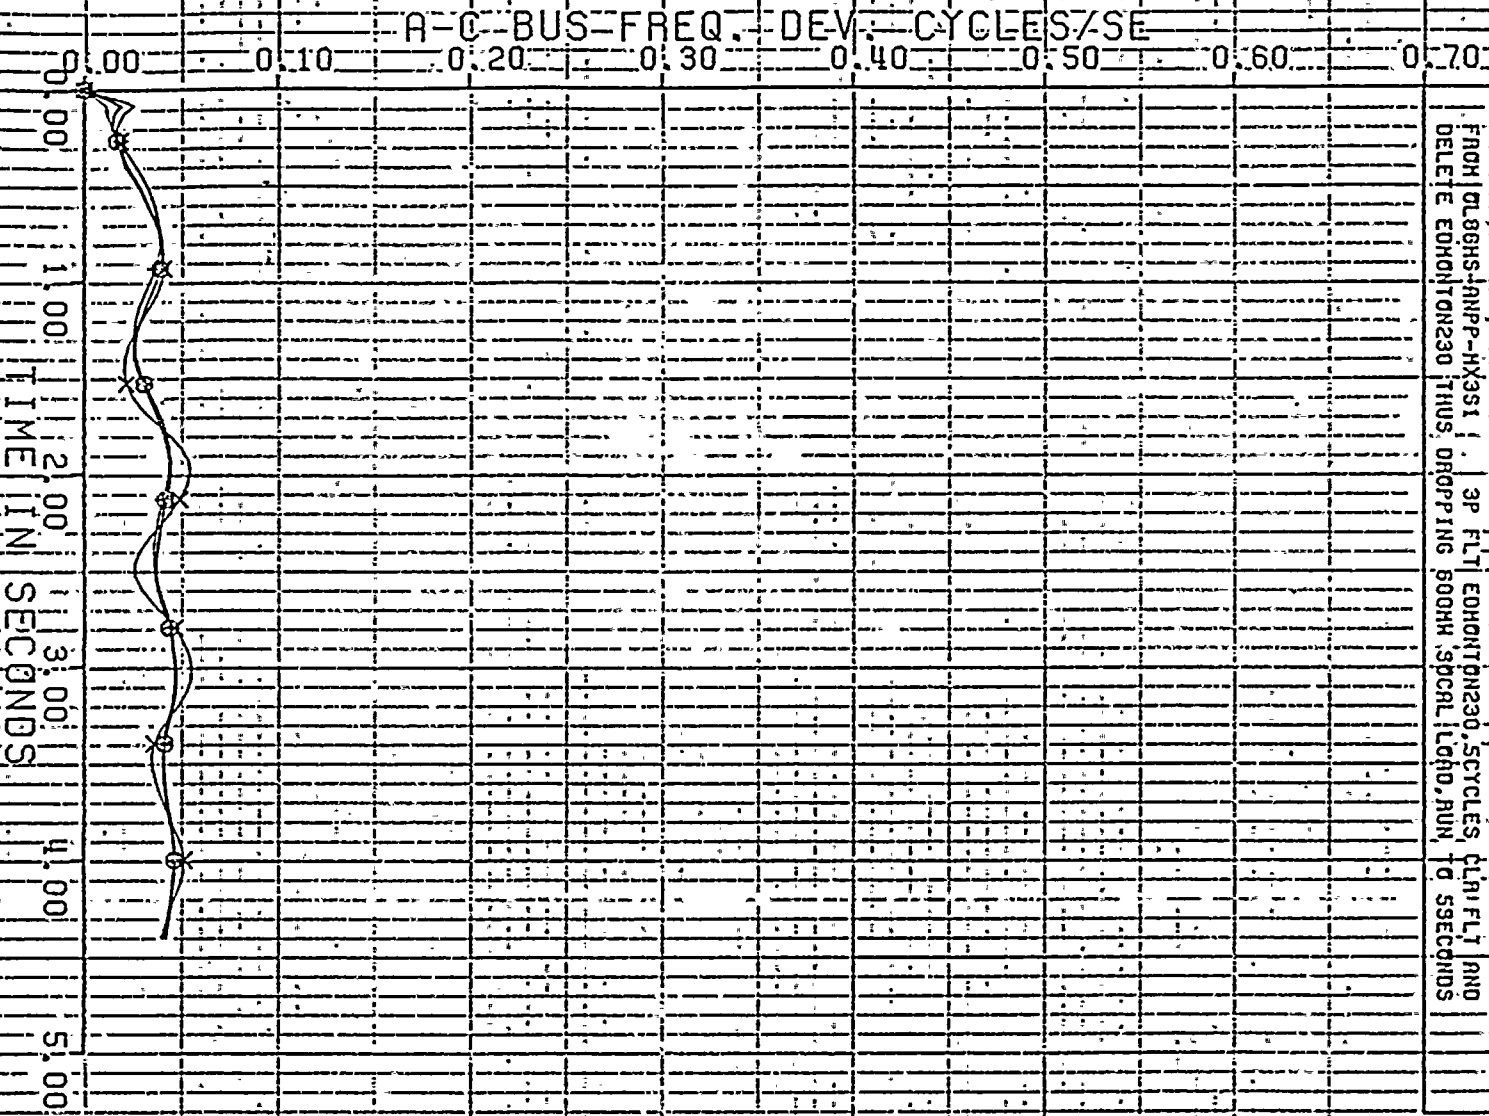 A-C BUS FREQ. DEV. CYCLES/SE
0.00 0.10 0.20 0.30 0.40 0.50 0.60 0.70
0.00 1.00 2.00 3.00 4.00 5.00
TIME IN SECONDS
3P FLT EDMONTON230,5CYCLES, CLR FLT AND
DELETE EDMONTON230 THUS DROPPING 600MW SOCAL LOAD,RUN TO 5SECONDS